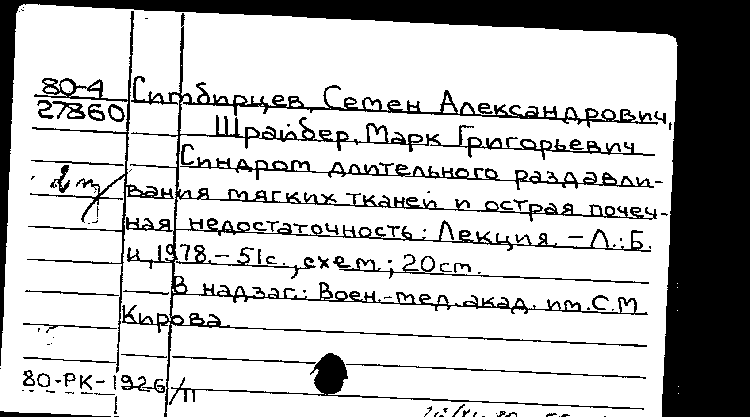 80-4
27860
Симбирцев, Семен Александрович,
Шрайбер, Марк Григорьевич
Синдром длительного раздавли-
вания мягких тканей и острая почеч-
ная недостаточность: Лекция. – Л.: Б.
и, 1978. – 51с., схем.; 20см.
В надзаг.: Воен.-мед. акад. им. С.М
Кирова.
80-РК-1926/П